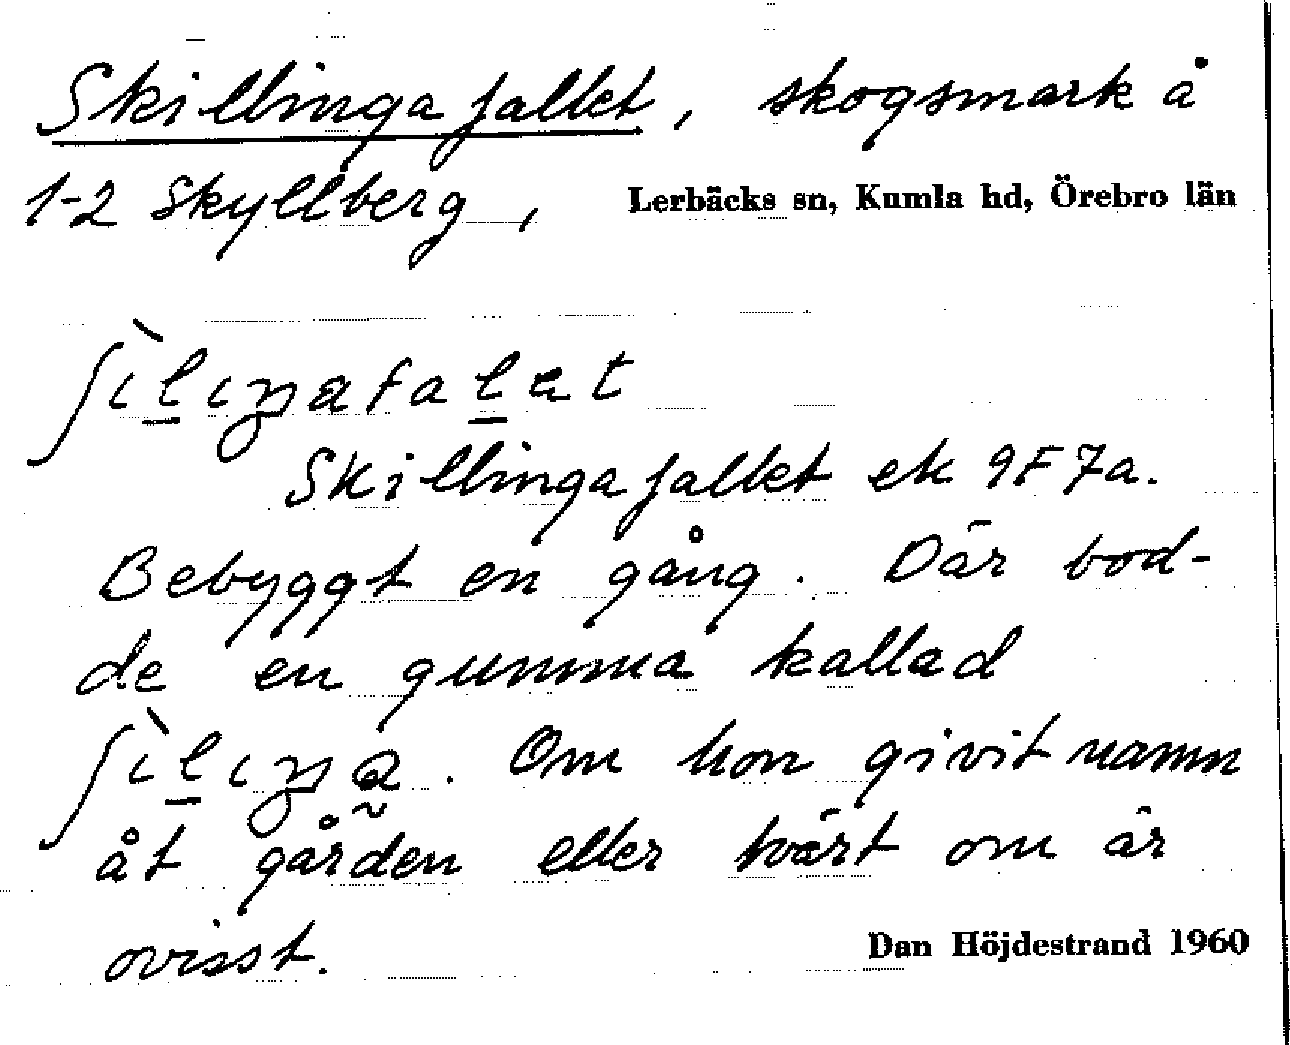 Skillingafallet, skogsmark å
1-2 Skyllberg, Lerbäcks sn, Kumla hd, Örebro län
ʃìl̲ɩŋafal̲et
Skillingafallet ek 9F7a.
Bebyggt en gång. Där bod-
de en gumma kallad
ʃìl̲ɩŋa̰. Om hon givit namn
åt gården eller tvärt om är
ovisst. Dan Höjdestrand 1960